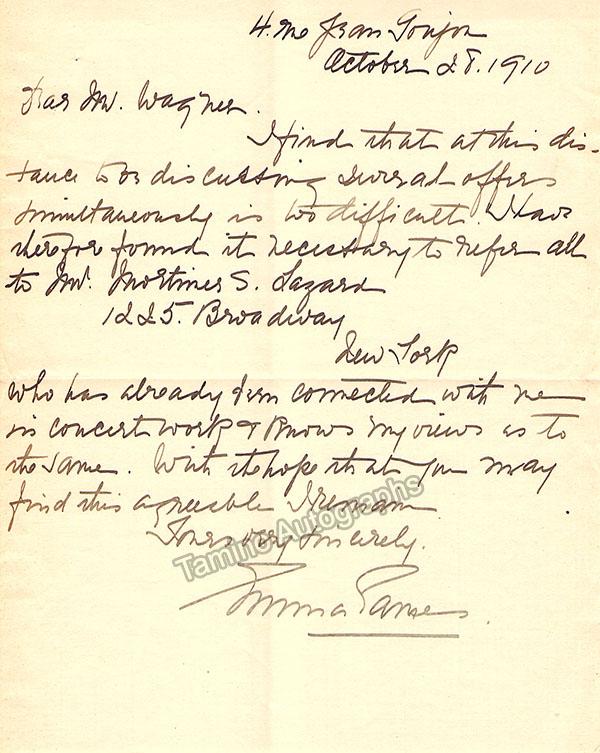 4. rue Jean Goujon
October 28. 1910
Dear Mr. Wagner.
I find that at this dis-
tance to be discussing several offers
simultaneously is too difficult. I have
therefore found it necessary to refer all
to Mr. Mortimer S. Lazard
1225. Broadway
New York
who has already been connected with me
in concert work & knows my views as to
the same. With the hope that you may
find this agreeable I remain
Yours very sincerely.
Emma Eames.
Tamino Autographs